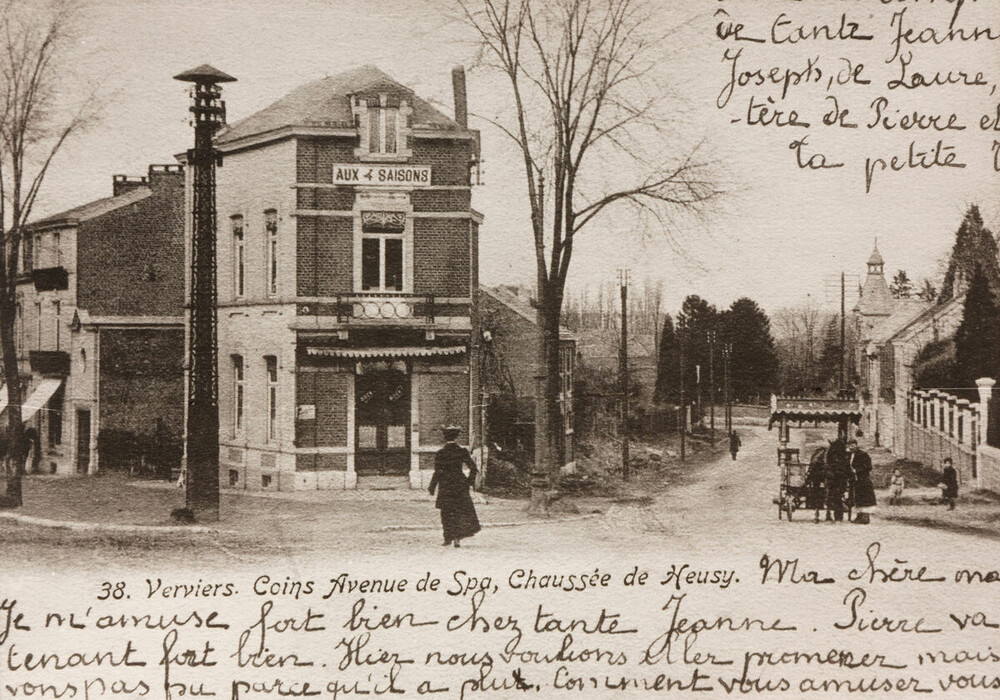 de tante Jeann
Joseph, de Laure,
-tère de Pierre et
Ta petite
AUX 4 SAISONS
38. Verviers. Coins Avenue de Spa, Chaussée de Heusy.
Ma chère ma
Je m'amuse fort bien chez tante Jeanne. Pierre va
tenant fort bien. Hier nous voulions aller promener mais
vons pas pu parce qu'il a plut. Comment vous amusez vous